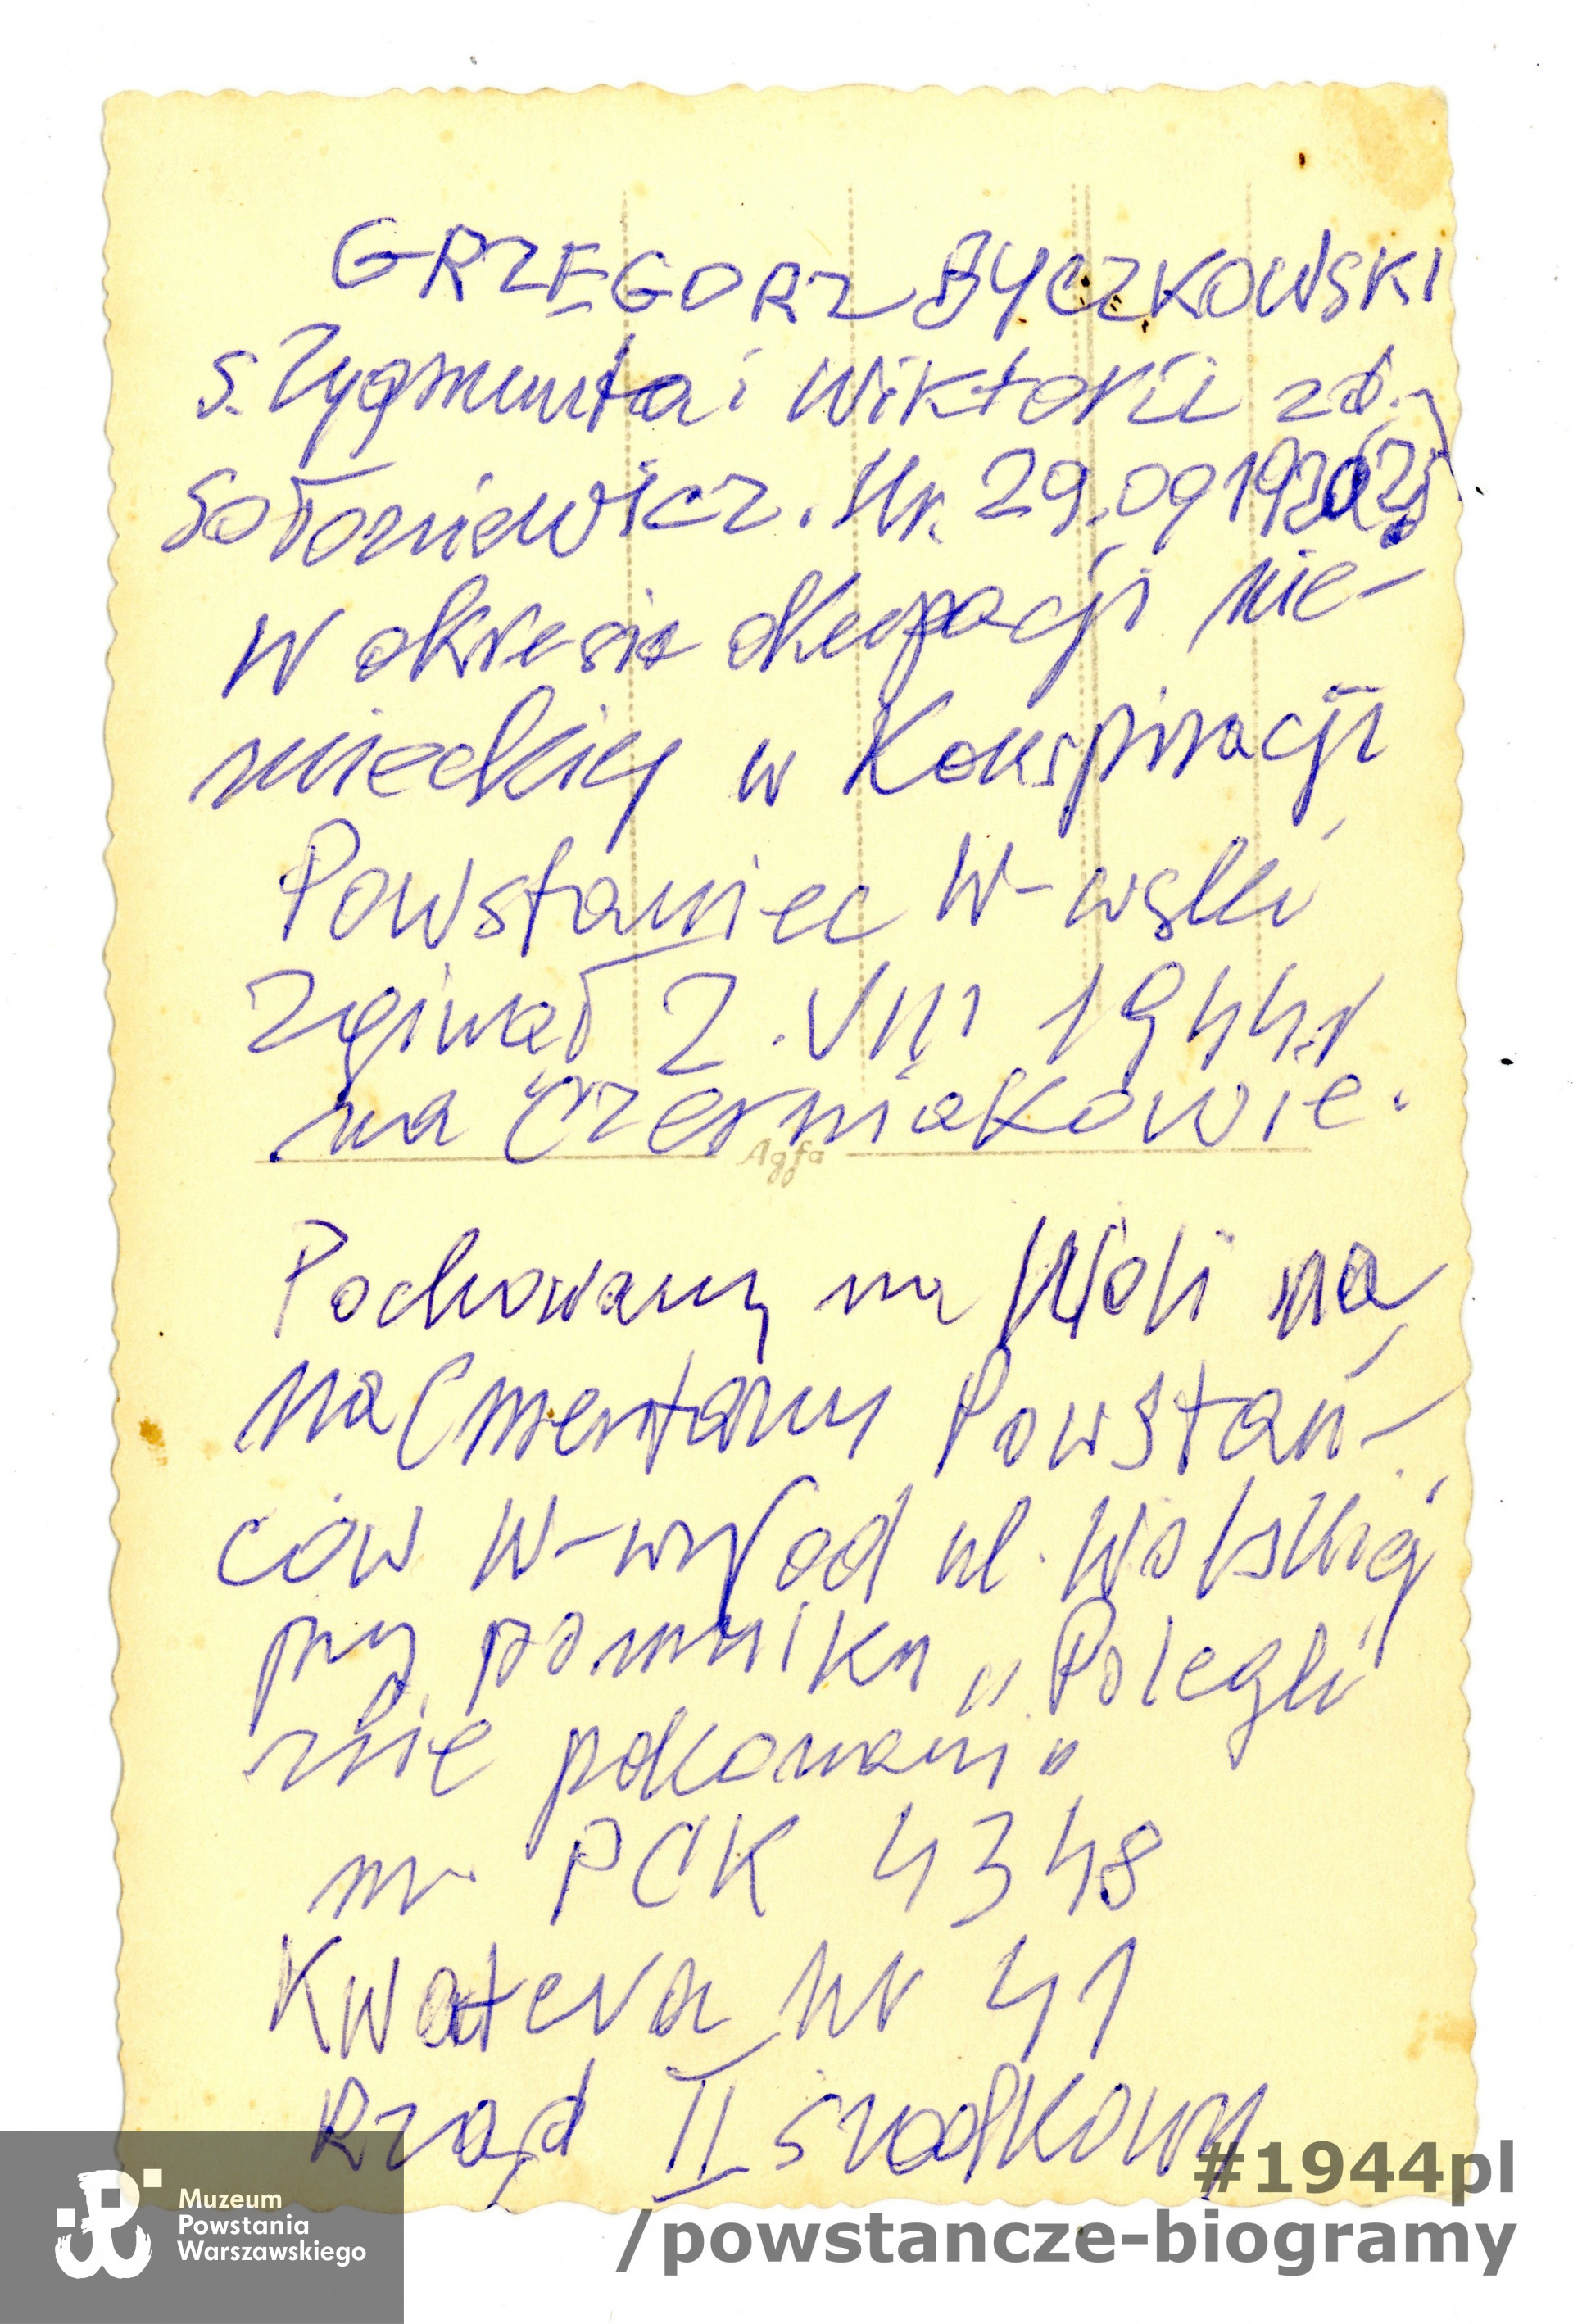 GRZEGORZ BYCZKOWSKI
s. Zygmunta i Wiktorii zd.
Sołoniewicz. Ur. 29.09
W okresie okupacji nie-
mieckiej w Konspiracji
Powstaniec W-wski
Zginął 2. VIII 1944 r
na Czerniakowie.
Agfa
Pochowany na Woli na
na Cmentarzu Powstań-
ców W-wy od ul. Wolskiej
przy pomniku „Polegli
nie pokonani"
nr PCK 4348
Kwatera nr 41
Rząd II środkowy
Muzeum
Powstania
Warszawskiego
#1944pl
/powstancze-biogramy